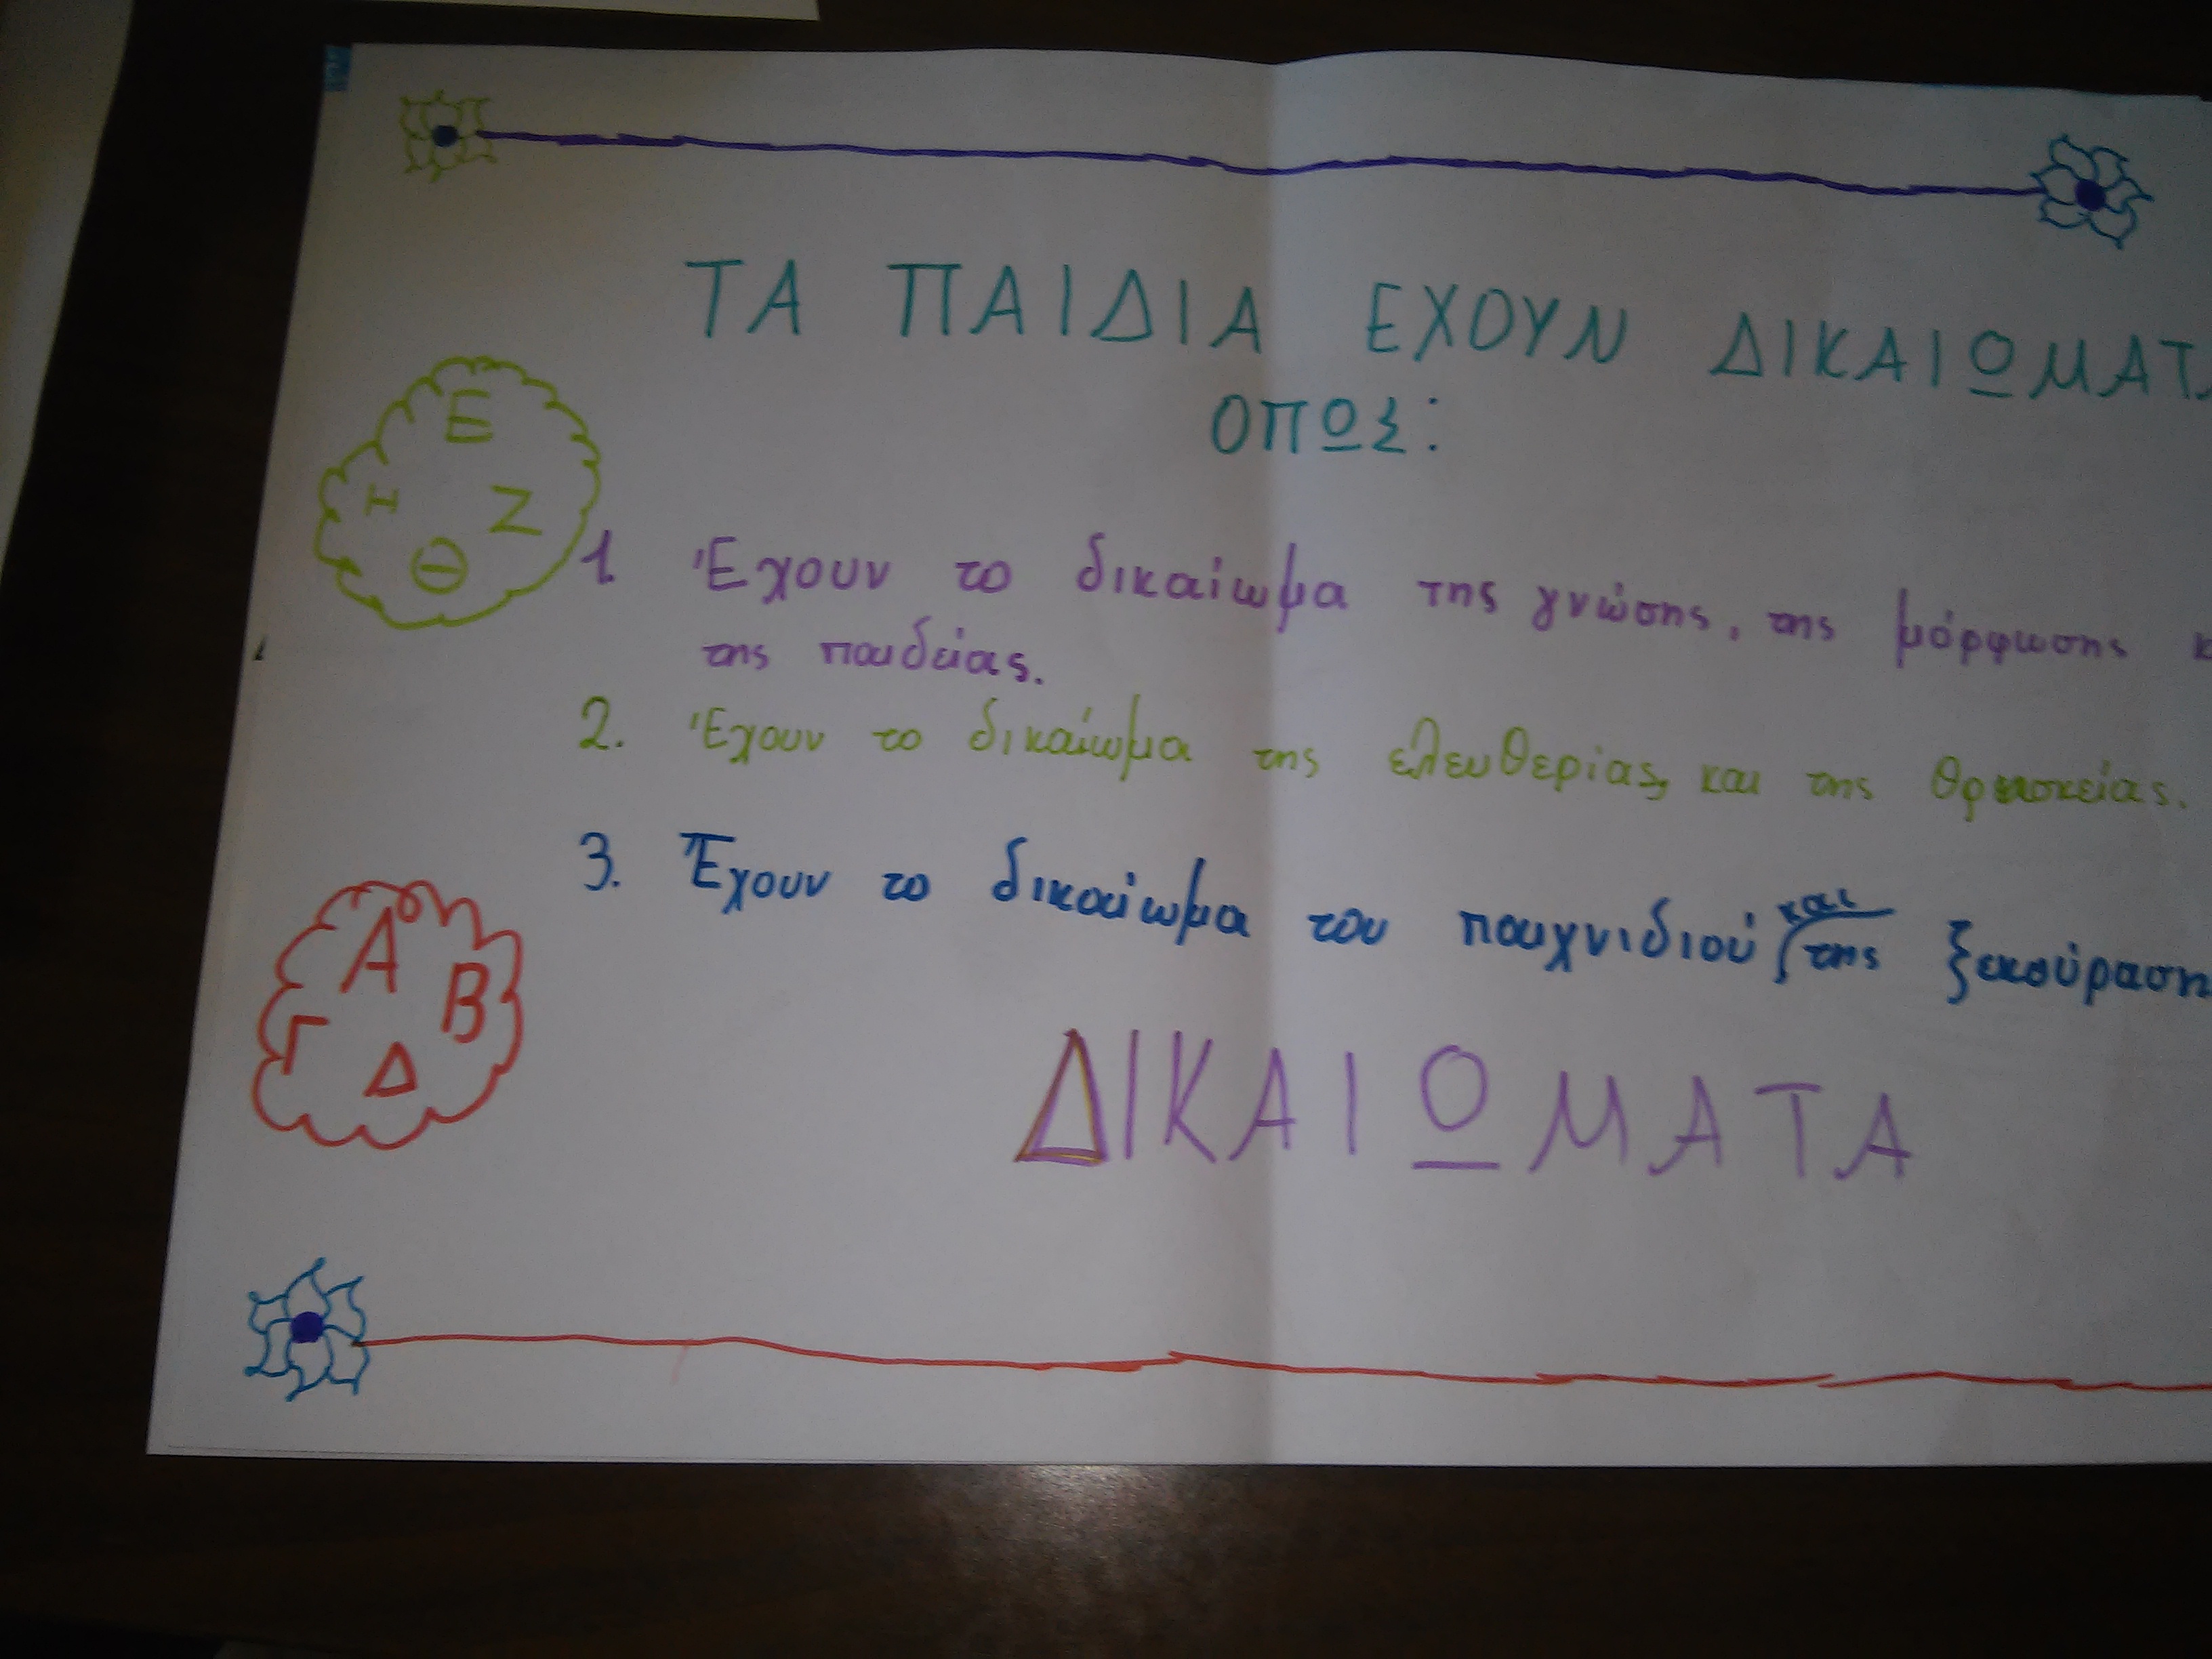 ΤΑ ΠΑΙΔΙΑ ΕΧΟΥΝ ΔΙΚΑΙΩΜΑΤΑ
ΟΠΩΣ:
Ε
Η Ζ
Θ
1. Έχουν το δικαίωμα της γνώσης, της μόρφωσης κ
της παιδείας.
2. Έχουν το δικαίωμα της ελευθερίας και της θρησκείας.
3. Έχουν το δικαίωμα του παιχνιδιού και της ξεκούραση
Α
Β
Γ
Δ
ΔΙΚΑΙΩΜΑΤΑ